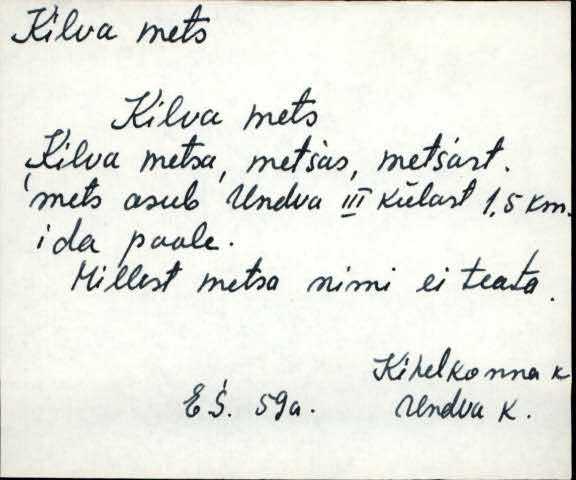 Kilva mets
Kilva mets
Kilva metsa, metśas, metśast.
mets asub Undva III külast 1,5 km.
ida poole.
Millest metsa nimi ei teata.
Kihelkonna k
E Ś. 59a. Undva k.